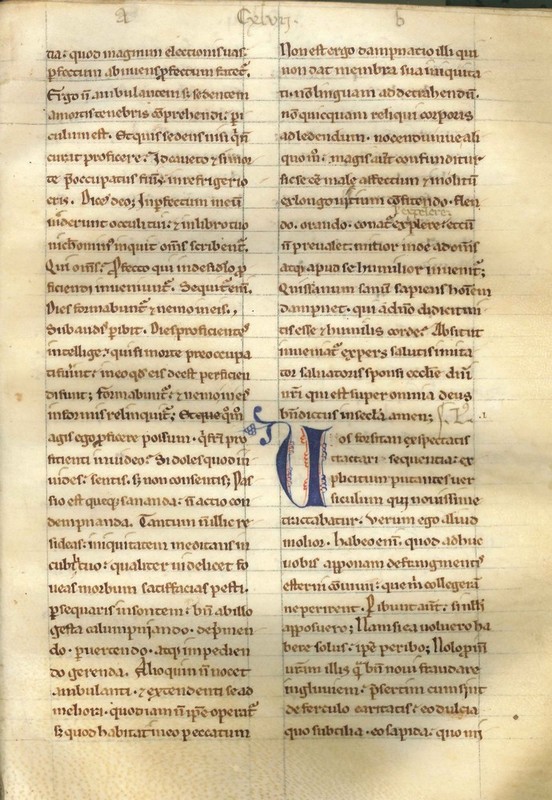 a Cebvii. b
tia: quod magnum electionis uas
perfectum abnuens profectum fatetur.
Ergo non ambulantem sed sedentem
a mortis tenebris comprehendi: peri
culum est. Et quis sedens nisi qui non
curat proficere? Id caueto et si mor
te preoccupatus fueris, in refrigerio
eris. Dices deo; Inperfectum meum
uiderunt oculi tui: et in libro tuo
nichominus inquit omnes scribentur.
Qui omnes? Profecto qui in desiderio pro
ficiendi inueniuntur. Sequitur enim.
Dies formabuntur et nemo in eis.,
Subaudis peribit. Dies proficientes
intellige: qui si morte preoccupa
ti fuerint: in eo quod eis deest perficien
di sunt; formabuntur et nemo in eis
informis relinquitur. Et quomodo
ais ego proficere possum. qui fratri pro
ficienti inuideo? Si doles quod in
uides: sentis. sed non consentis; Pas
sio est quoque sananda. non actio con
dempnanda. Tantum non illic re
sideas: iniquitatem meditans in
cubili tuo: qualiter uidelicet fo
ueas morbum satisfacias pesti.
persequaris insontem: bene ab illo
gesta calumpniando. deprimen
do. peruertendo. atque impedien
do gerenda. Alioquin non nocet
ambulanti. et extendenti se ad
meliora. quod iam non ipse operatur
sed quod habitat in eo peccatum
Non est ergo dampnatio illi qui
non dat membra sua iniquita
ti. non linguam ad detrahendum.
non quicquam reliqui corporis
ad ledendum. nocendumue ali
quomodo: magis autem confunditur
sic se male affectum et molitur
ex longo uitium confitendo. flen
explere.
do. orando. conatur explere: et cum
non preualet: mitior inde ad omnes
atque apud se humilior inuenitur;
Quis sanum sanus sapiens hominem
dampnet. qui a domino didicit mi
tis esse et humilis corde? Absit ut
inueniatur expers salutis imita
tor saluatoris sponsi ecclesie domini
nostri qui est super omnia deus
benedictus in secula amen; S. L.
Uos forsitan exspectatis
tractari sequentia: ex
plicitum putantes uer
siculum qui nouissime
tractabatur. Verum ego aliud
molior. habeo enim. quod adhuc
uobis apponam de fragmentis
esterni conuiuii: que mihi collegeram
ne perirent. Peribunt autem: si nulli
apposuero; Nam si ea uoluero ha
bere solus: ipse peribo; Nolo proinde
uestram illis quam bene noui fraudare
ingluuiem: presertim cum sint
de ferculo caritatis: eo dulcia
quo subtilia. eo sapida: quo mi